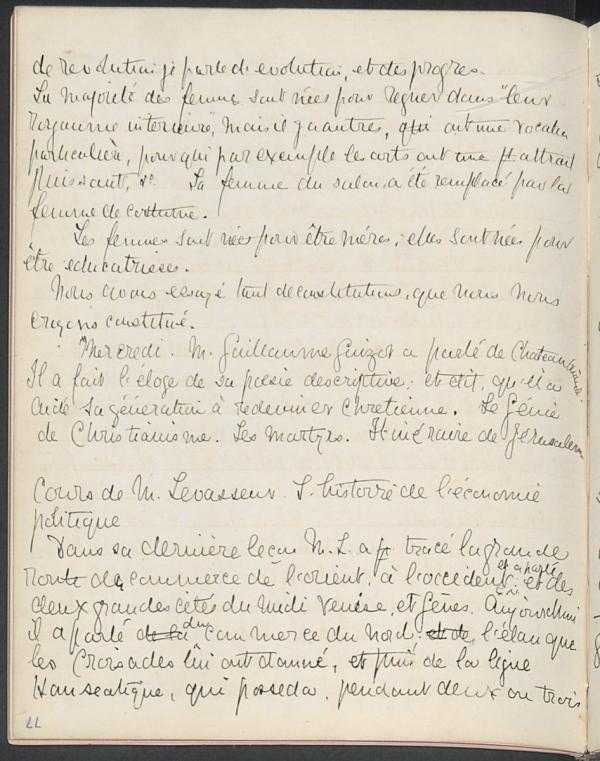 de revolution je parle d'evolution, et des progres.
La majorité des femmes sont nées pour regner dans "leur
royaume interieure", mais il y a autres, qui ont une vocation
particulière, pour qui par exemple les arts ont une attrait
puissant, La femme du salon a été remplacé par la
femme de costume.
Les femmes sont nées pour être mères, elles sont nées pour
être educatrices.
Nous avons essayé tant de constitutions, que nous nous
croyons constitué.
Mercredi. M. Guillaume Guizot a parlé de Chateaubriand.
Il a fait l'éloge de sa poesie descriptive, et dit, qu'il a
aidé sa génération à redevenir chretienne. Le Génie
de Christianisme. Les Martyrs. Itinéraire de Jérusalem
Cours de M. Levasseur. L'histoire de l'économie
politique
Dans sa dernière leçon M. L. a tracé la grande
route de commerce de l'orient, à l'occident, et a parlé des
deux grandes cités du Midi Venise, et Gênes. Aujourd'hui
il a parlé de la du commerce du Nord. et de l'élan que
les Croisades lui ont donné, et puis de la ligue
Hanseatique, qui posseda, pendant deux ou trois
77